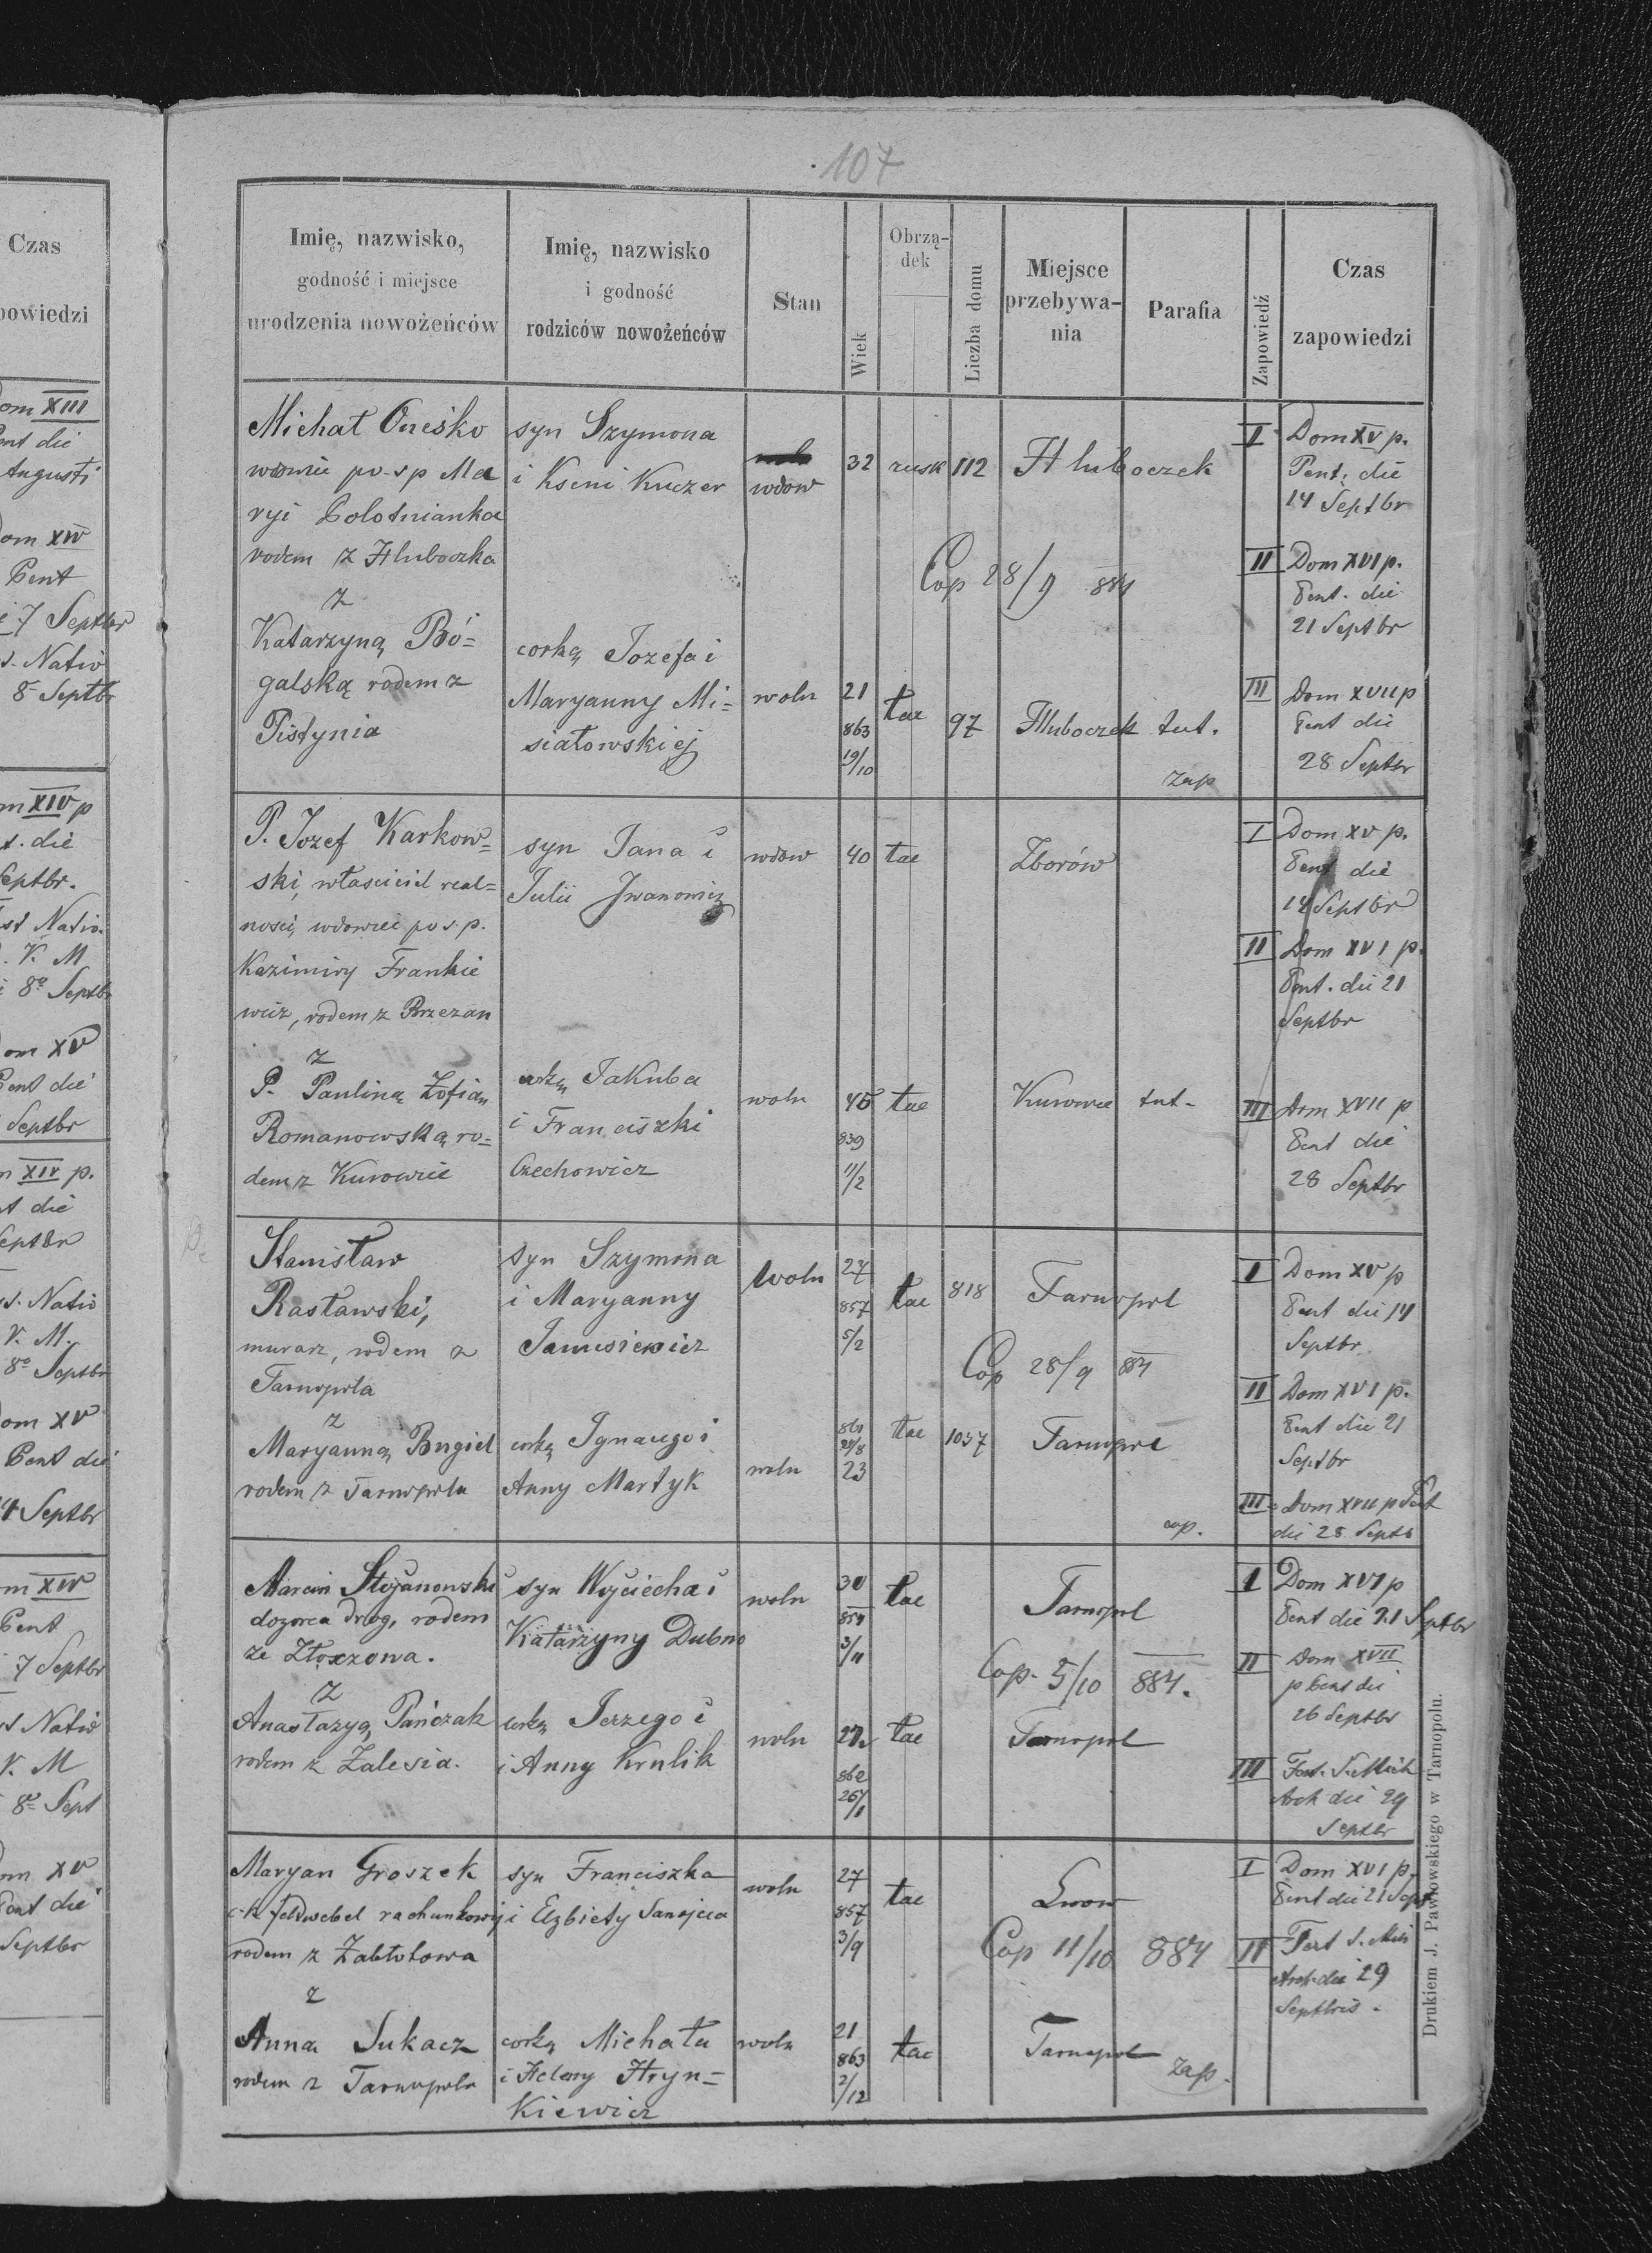 107
Imię, nazwisko,
godność i miejsce
urodzenia nowożeńców
Imię, nazwisko
i godność
rodziców nowożeńców
Stan
Wiek
Obrzą-
dek
Liczba domu
Miejsce
przebywa-
nia
Parafia
Zapowiedź
Czas
zapowiedzi
Michał Oneśko
po s p Ma
ryi Bolotnianka
rodem z Hluboczka
syn Szymona
i Kseni Kuczer
wdow
32
rusk
112
Hluboczek
I Dom XV p.
Pent. die
14 Septbr
Cop 28/9 884
II Dom XVI p.
Pent. die
21 Septbr
z
Katarzyną Bó=
galską rodem z
Pistynia
corką Jozefa i
Maryanny Mi=
siałowskiej
woln
21
863
19/10
łac
97
Hluboczek
tut.
zap
III Dom XVII p
Pent die
28 Septbr
P. Jozef Karkow=
ski, właściciel real=
ności, wdowiec po s. p.
Kazimiry Frankie
wicz, rodem z Brzezan
syn Jana i
Julii Iwanowicz
wdow
40
łac
Zborów
I Dom XV p.
Pent die
14 Septbr
II Dom XVI p.
Pent. die 21
Septbr
z
P. Pauliną Zofią
Romanowską ro=
dem z Kurowiec
corką Jakuba
i Franciszki
Czechowicz
woln
45
839
11/2
łac
Kurowce
tut-
III Dom XVII p
Pent die
28 Septbr
Stanisław
Rasławski,
murarz, rodem z
Tarnopola
syn Szymona
i Maryanny
Janusiewicz
woln
27
857
5/2
łac
818
Tarnopol
Cop 28/9 84
I Dom XV p
Pent die 14
Septbr
II Dom XVI p.
Pent die 21
Septbr
z
Maryanną Bugiel
rodem z Tarnopola
corką Ignacego i
Anny Martyk
woln
861
23
łac
1037
Tarnopol
cop.
III Dom XVII p Pent
die 28 Septb
Marcin Stojanowski
dozorca drog, rodem
ze Złoczowa.
syn Wojciecha i
Katarzyny Dubno
woln
30
854
3/11
łac
Tarnopol
Cop. 5/10 884.
I Dom XVI p
Pent die 21 Septbr
II Dom XVII
p Pent die
26 Septbr
z
Anastazyą Pańczak
rodem z Zalesia.
corką Jerzego i
i Anny Krulik
woln
22
862
26/1
łac
Tarnopol
III Fest. S. Mich
Arch die 29
Septbr
Maryan Groszek
c. k. feldwebel rachunkowy
rodem z Zabłotowa
syn Franciszka
i Elzbiety Sanojca
woln
27
857
3/9
łac
Lwow
Cop 11/10 884
I Dom XVI p.
Pent die 21 Sept
II Fest S. Mich
Arch die 29
Septbris.
z
Anna Sukacz
rodem z Tarnopola
corką Michała
i Heleny Hryn=
kiewicz
woln
21
863
2/12
łac
Tarnopol
zap.
Drukiem J. Pawłowskiego w Tarnopolu.
Czas
powiedzi
om XIII
Pent die
Augusti
om XIV
Pent
7 Septbr
s. Nativ
8 Septbr
m XIV p
t. die
Septbr.
st Nativ.
V. M
8º Septbr
om XV
Pent die
Septbr
XIV p.
t die
Septbr
s. Nativ
V. M.
8º Septbr
om XV
Pent die
14 Septbr
m XIV
Pent
7 Septbr
s Nativ
V. M
8º Sept
om XV
Pent die
Septbr